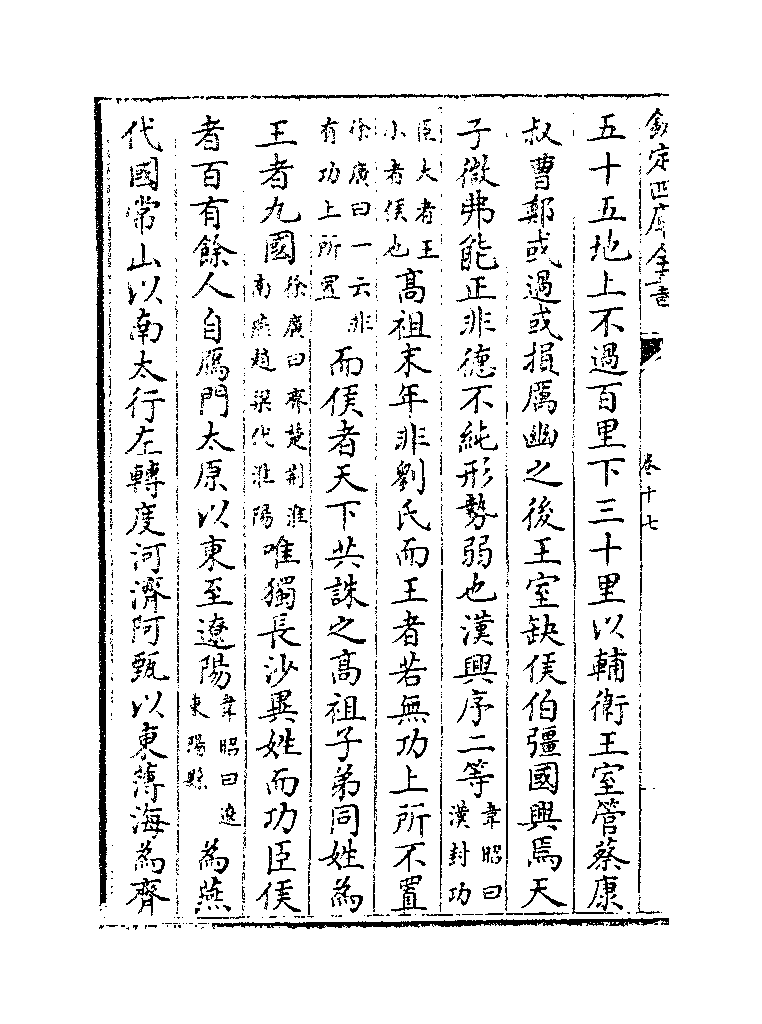 欽定四庫全書　卷十七
五十五地上不過百里下三十里以輔衛王室管蔡康
叔曹鄭或過或損厲幽之後王室缺侯伯彊國興焉天
子微弗能正非德不純形勢弱也漢興序二等韋昭曰漢封功
臣大者王小者侯也高祖末年非劉氏而王者若無功上所不置
徐廣曰一云非有功上所置而侯者天下共誅之高祖子弟同姓為
王者九國徐廣曰齊楚荆淮南燕趙梁代淮陽唯獨長沙異姓而功臣侯
者百有餘人自鴈門太原以東至遼陽韋昭曰遼東陽縣為燕
代國常山以南太行左轉度河濟阿甄以東薄海為齊